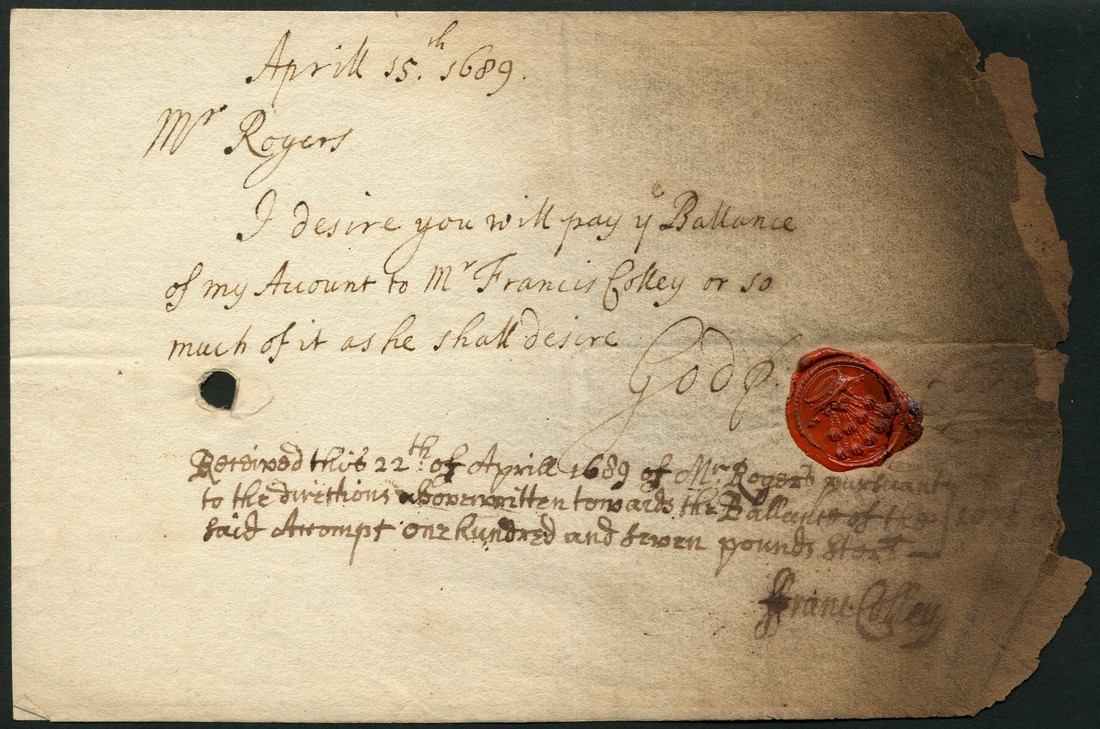 Aprill 15.th 1689.
Mr Rogers
I desire you will pay ye Ballance
of my Account to Mr Francis Colley or so
much of it as he shall desire
Received this 22th. of Aprill 1689 of Mr. Rogers pursuant
to the directions abovewritten towards the Ballance of the
said Accompt one hundred and seven pounds
Franc. Colley